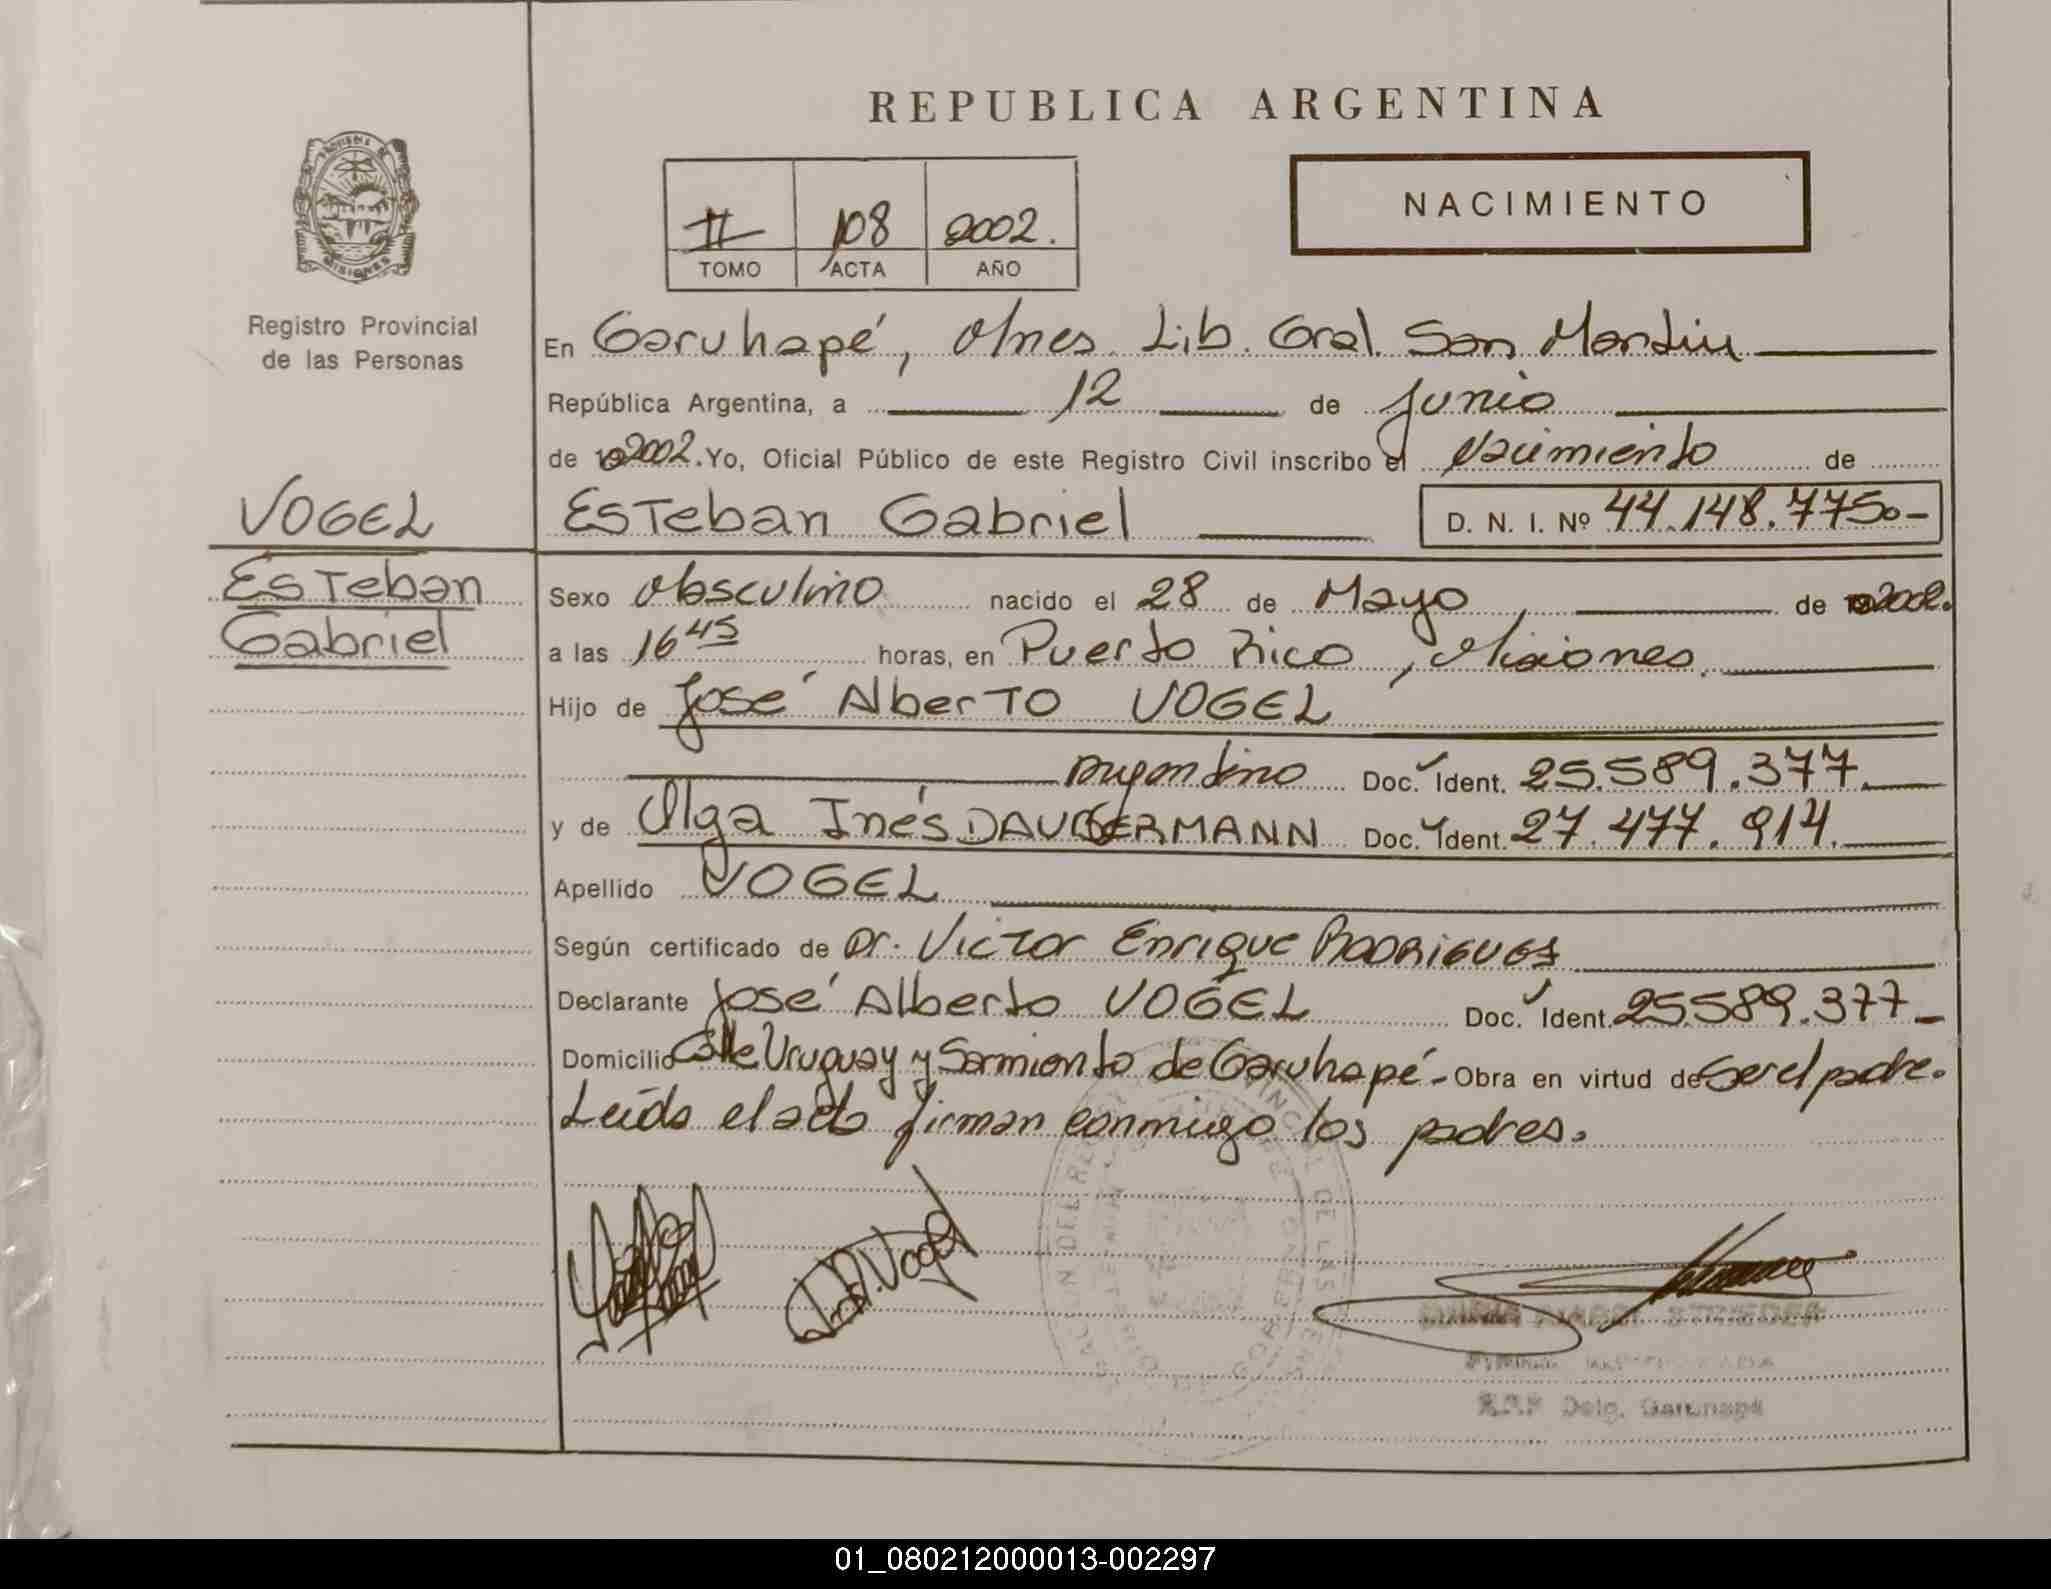 REPUBLICA ARGENTINA
PROVINCIA DE MISIONES
Registro Provincial
de las Personas
II 108 2002.
TOMO ACTA AÑO
NACIMIENTO
En Garuhapé, Mnes. Lib. Gral. San Martín
República Argentina, a 12 de Junio
de 192002. Yo, Oficial Público de este Registro Civil inscribo el Nacimiento de
VOGEL
Esteban Gabriel D. N. I. Nº 44.148.775
Esteban
Gabriel
Sexo Masculino nacido el 28 de Mayo, de 2002.
a las 16 45 horas, en Puerto Rico, Misiones.
Hijo de José Alberto VOGEL
Argentino Doc. Ident. 25.589.377.
y de Olga Inés DAUBERMANN Doc. Ident. 27.477.914.
Apellido VOGEL
Según certificado de Dr. Victor Enrique RODRIGUES
Declarante José Alberto VOGEL Doc. Ident. 25.589.377
Domicilio Calle Uruguay y Sarmiento de Garuhapé - Obra en virtud de Ser el padre.
Leída el acta firman conmigo los padres.
Vogel
R.P.P Delg. Garuhapé
01_080212000013-002297